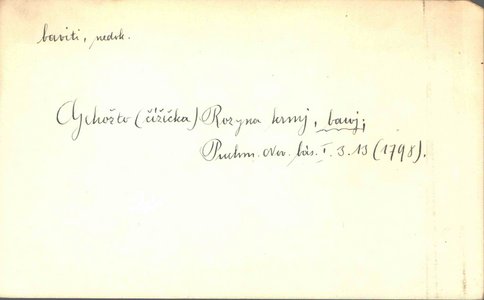 baviti, nedok.
Gehožto (čížíčka) Rozyna krmj, bawj;
Puchm. Nov. bás. I. 3. 13 (1798).